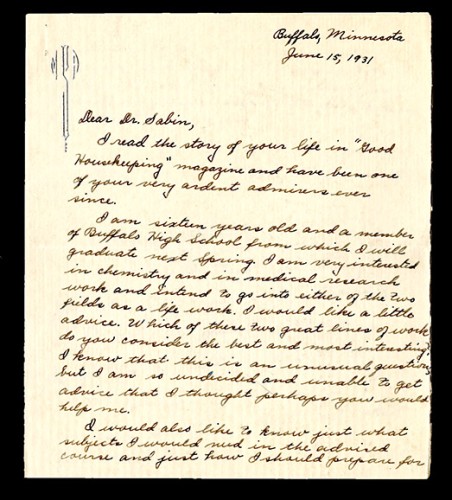 Buffalo, Minnesota
June 15, 1931
Dear Dr. Sabin,
I read the story of your life in "Good
Housekeeping" magazine and have been one
of your very ardent admirers ever
since.
I am sixteen years old and a member
of Buffalo High School from which I will
graduate next spring. I am very interested
in chemistry and in medical research
work and intend to go into either of the two
fields as a life work. I would like a little
advice. Which of these two great lines of work
do you consider the best and most interesting?
I know that this is an unusual question,
but I am so undecided and unable to get
advice that I thought perhaps you would
help me.
I would also like to know just what
subjects I would need in the advised
course and just how I should prepare for